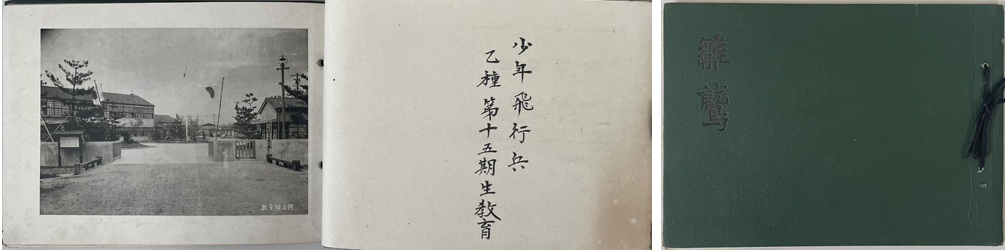 少年飛行兵
乙種第十五期生教育
雛鷲